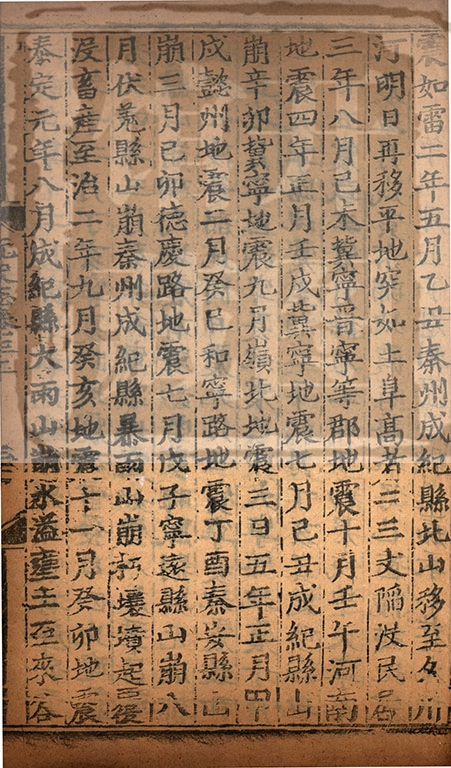 震如雷二年五月乙丑秦州成紀縣北山移至夕川
河明日再移平地突如土阜高者二三丈陷没民居
三年八月己未冀寧晉寧等郡地震十月壬午河南
地震四年正月壬戌冀寧地震七月己丑成紀縣山
崩辛卯冀寧地震九月嶺北地震三日五年正月甲
戌懿州地震二月癸巳和寧路地震丁酉秦安縣山
崩三月己卯德慶路地震七月戊子寧遠縣山崩八
月伏羌縣山崩秦州成紀縣暴雨山崩朽壤墳起覆
没畜産至治二年九月癸亥地震十一月癸卯地震
泰定元年八月成紀縣大雨山崩水溢壅土至來谷